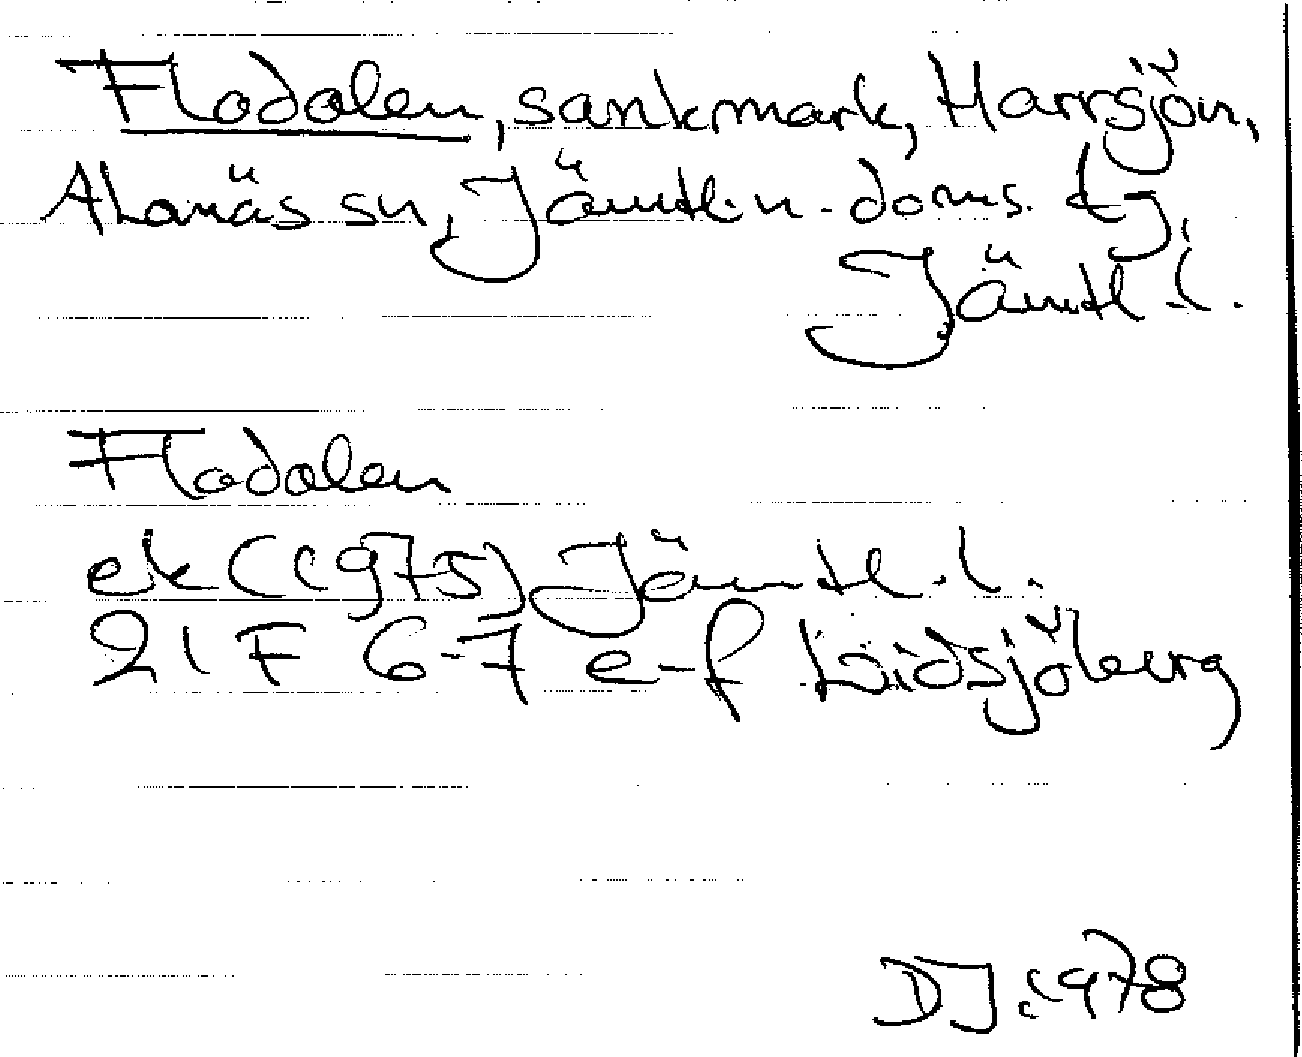 Flodalen, sankmark, Harrsjön,
Alanäs sn, Jämtl. n. doms. tg
Jämtl. l.
Flodalen
ek (1975) Jämtl. l.
21 F 6-7 e-f Lidsjöberg
DJ 1978